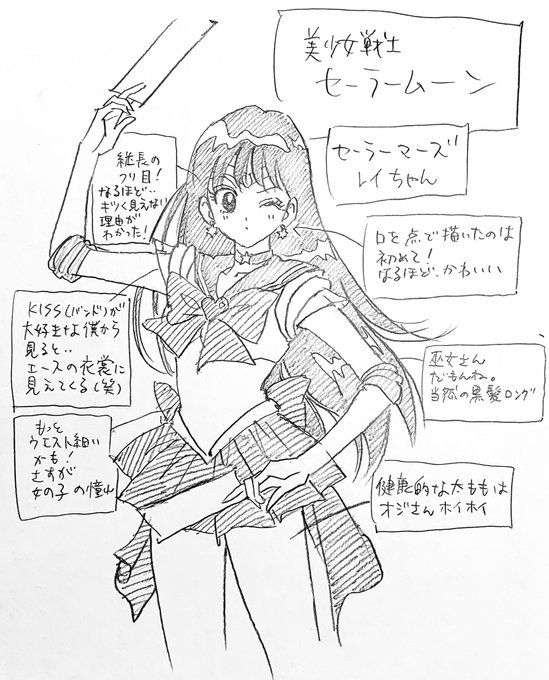 美少女戦士
セーラームーン
セーラーマーズ
レイちゃん
縦長の
つり目!
なるほど‥
キツく見えない
理由が
わかった!
口を点で描いたのは
初めて!
なるほど、かわいい
KISS(バンド)が
大好きな僕から
見ると‥
エースの衣裳に
見えてくる(笑)
巫女さん
だもんね。
当然の黒髪ロング
もっと
ウエスト細い
かも!
さすが
女の子の憧れ
健康的な太ももは
オジさんホイホイ